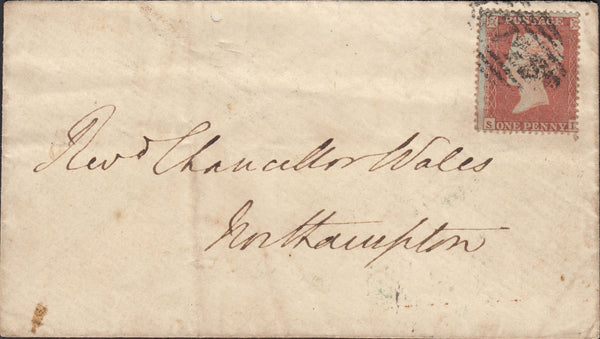 POSTAGE
S ONE PENNY I
Revd Chancellor Wales
Northampton